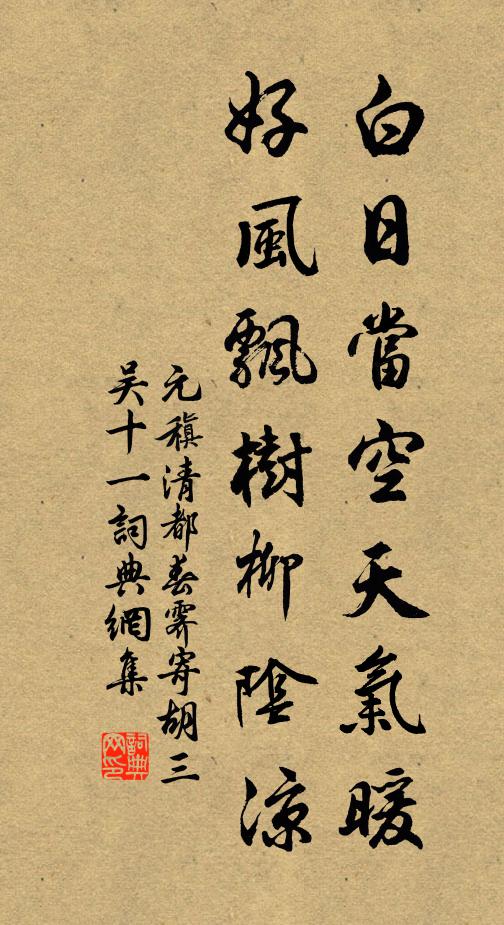 白日當空天氣暖
好風飄樹柳陰涼
元稹清都春霽寄胡三
吴十一詞典網集
詞典網印